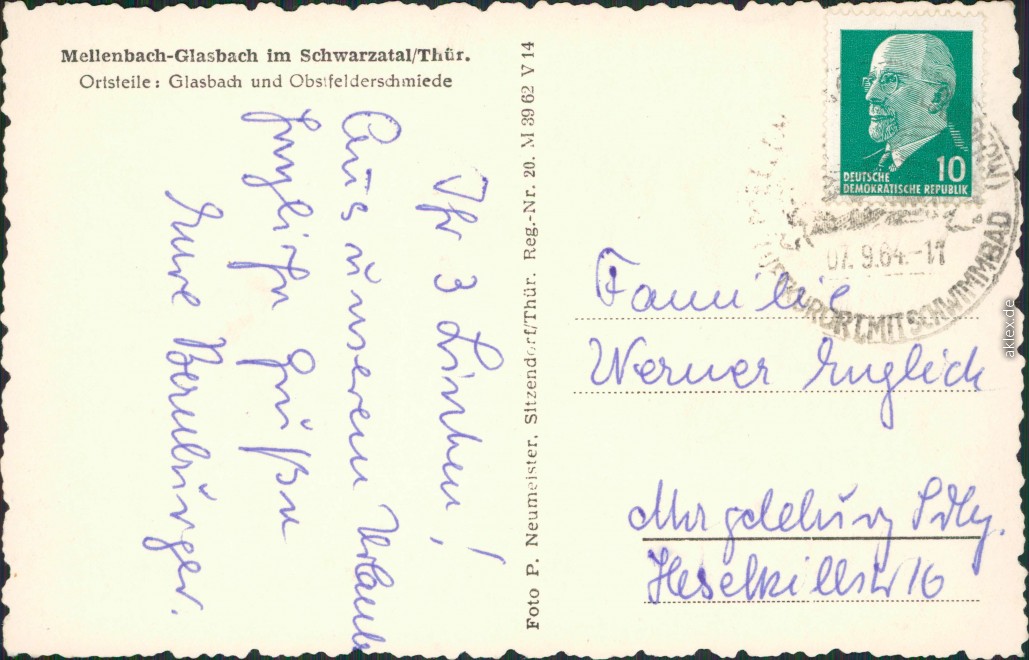 Mellenbach-Glasbach im Schwarzatal/Thür.
Ortsteile: Glasbach und Obstfelderschmiede
Ihr 3 Lieben!
Aus unserem Urlaub
herzliche Grüße
Eure Bernburger.
Foto P. Neumeister, Sitzendorf/Thür. Reg.-Nr. 20. M 39 62 V 14
10
DEUTSCHE
DEMOKRATISCHE REPUBLIK
07.9.64.-11
KURORT MIT SCHWIMMBAD
Familie
Werner Englich
Magdeburg
16
aklex.de